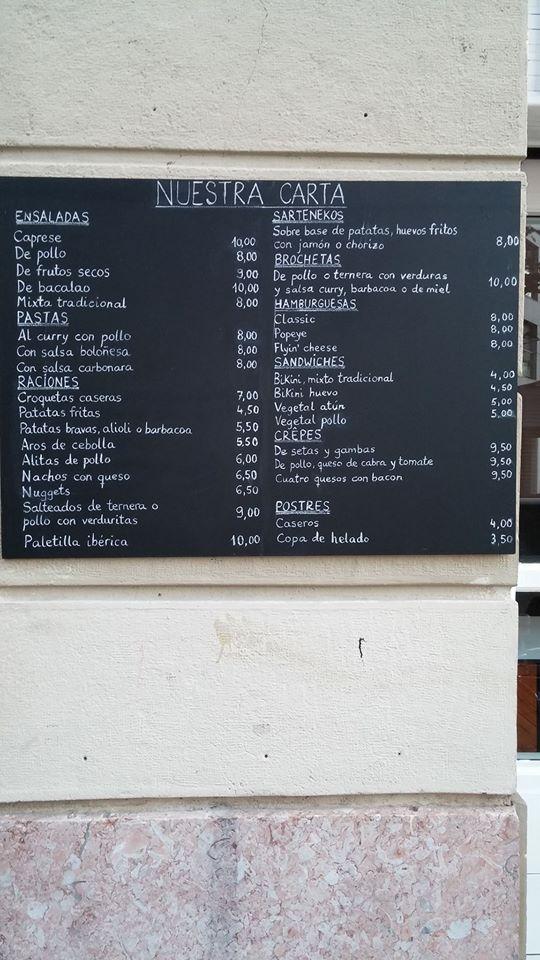 NUESTRA CARTA
ENSALADAS
Caprese 10,00
De pollo 8,00
De frutos secos 9,00
De bacalao 10,00
Mixta tradicional 8,00
PASTAS
Al curry con pollo 8,00
Con salsa boloñesa 8,00
Con salsa carbonara 8,00
RACIONES
Croquetas caseras 7,00
Patatas fritas 4,50
Patatas bravas, alioli o barbacoa 5,50
Aros de cebolla 5,50
Alitas de pollo 6,00
Nachos con queso 6,50
Nuggets 6,50
Salteados de ternera o
pollo con verduritas 9,00
Paletilla ibérica 10,00
SARTENEKOS
Sobre base de patatas, huevos fritos
con jamón o chorizo 8,00
BROCHETAS
De pollo o ternera con verduras
y salsa curry, barbacoa o de miel 10,00
HAMBURGUESAS
Classic 8,00
Popeye 8,00
Flyin' cheese 8,00
SANDWICHES
Bikini, mixto tradicional 4,00
Bikini huevo 4,50
Vegetal atún 5,00
Vegetal pollo 5,00
CRÊPES
De setas y gambas 9,50
De pollo, queso de cabra y tomate 9,50
Cuatro quesos con bacon 9,50
POSTRES
Caseros 4,00
Copa de helado 3,50